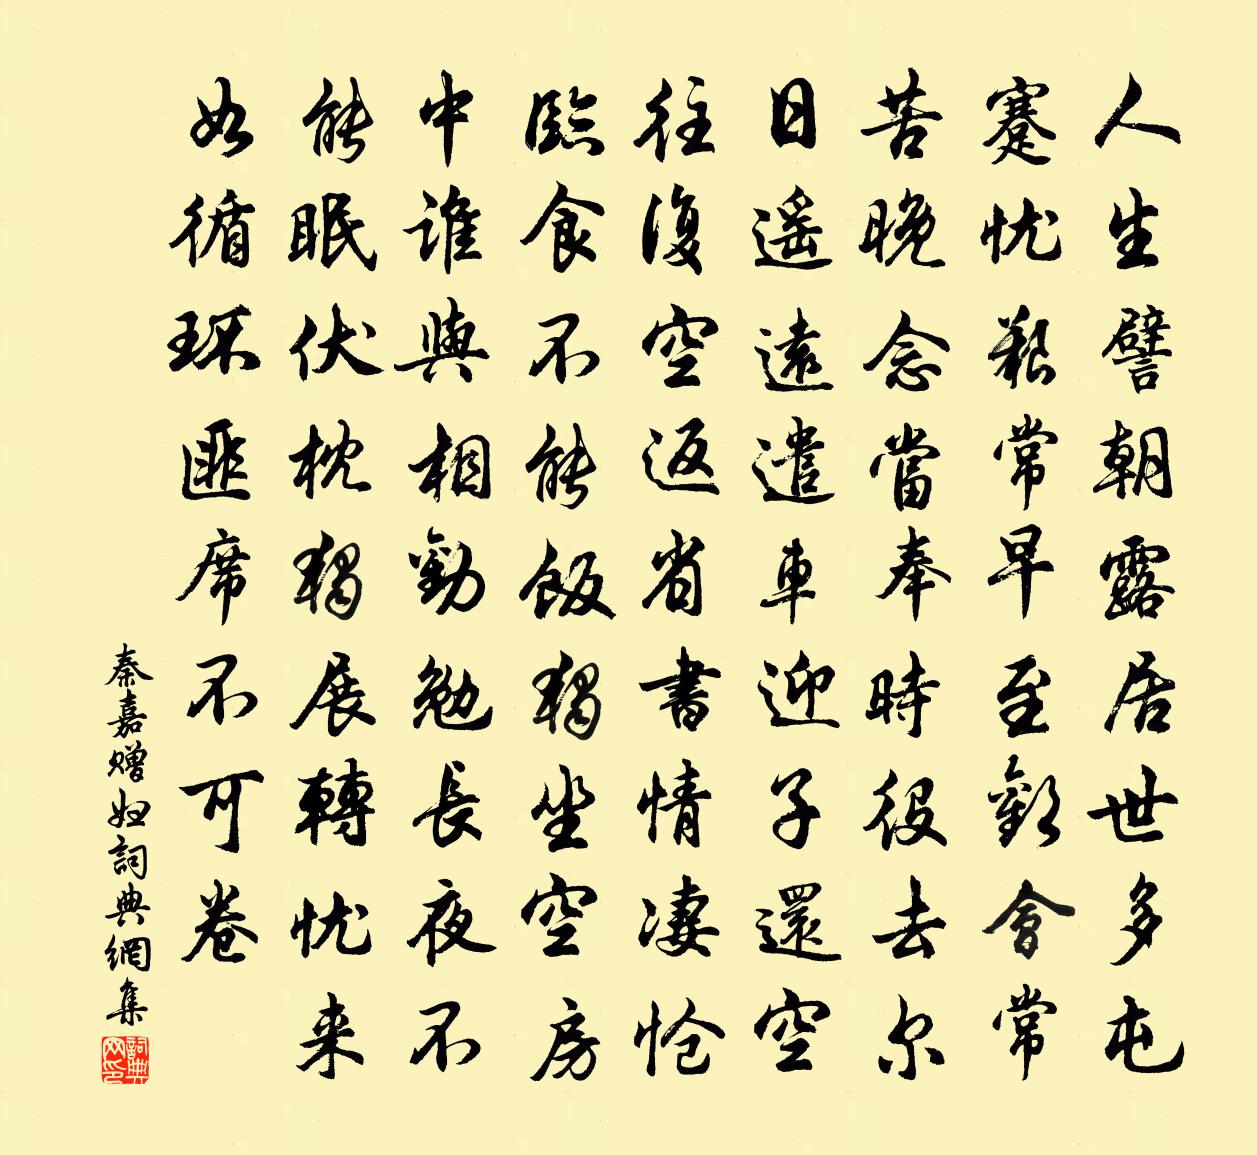 人生譬朝露居世多屯
蹇忧艱常早至歡會常
苦晚念當奉時役去尔
日遥遠遣車迎子還空
往復空返省書情凄怆
臨食不能飯獨坐空房
中誰與相勸勉長夜不
能眠伏枕獨展轉忧来
如循环匪席不可卷
秦嘉赠妇詞典網集
詞典
网印